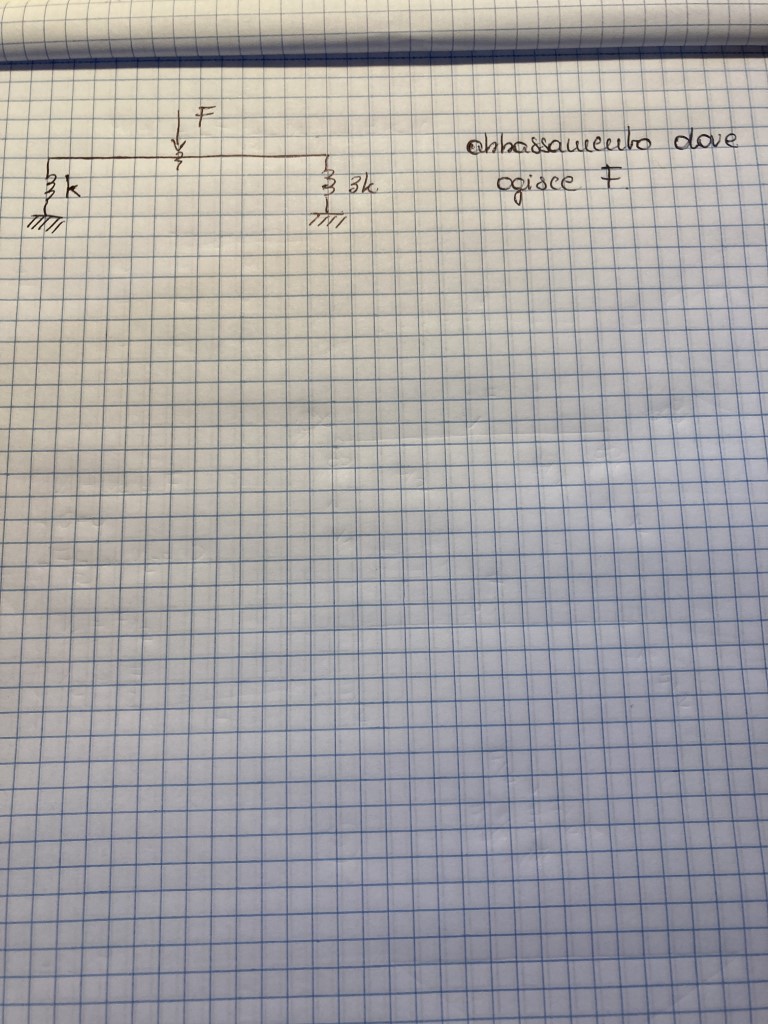 F
k
3k
abbassamento dove
agisce F.